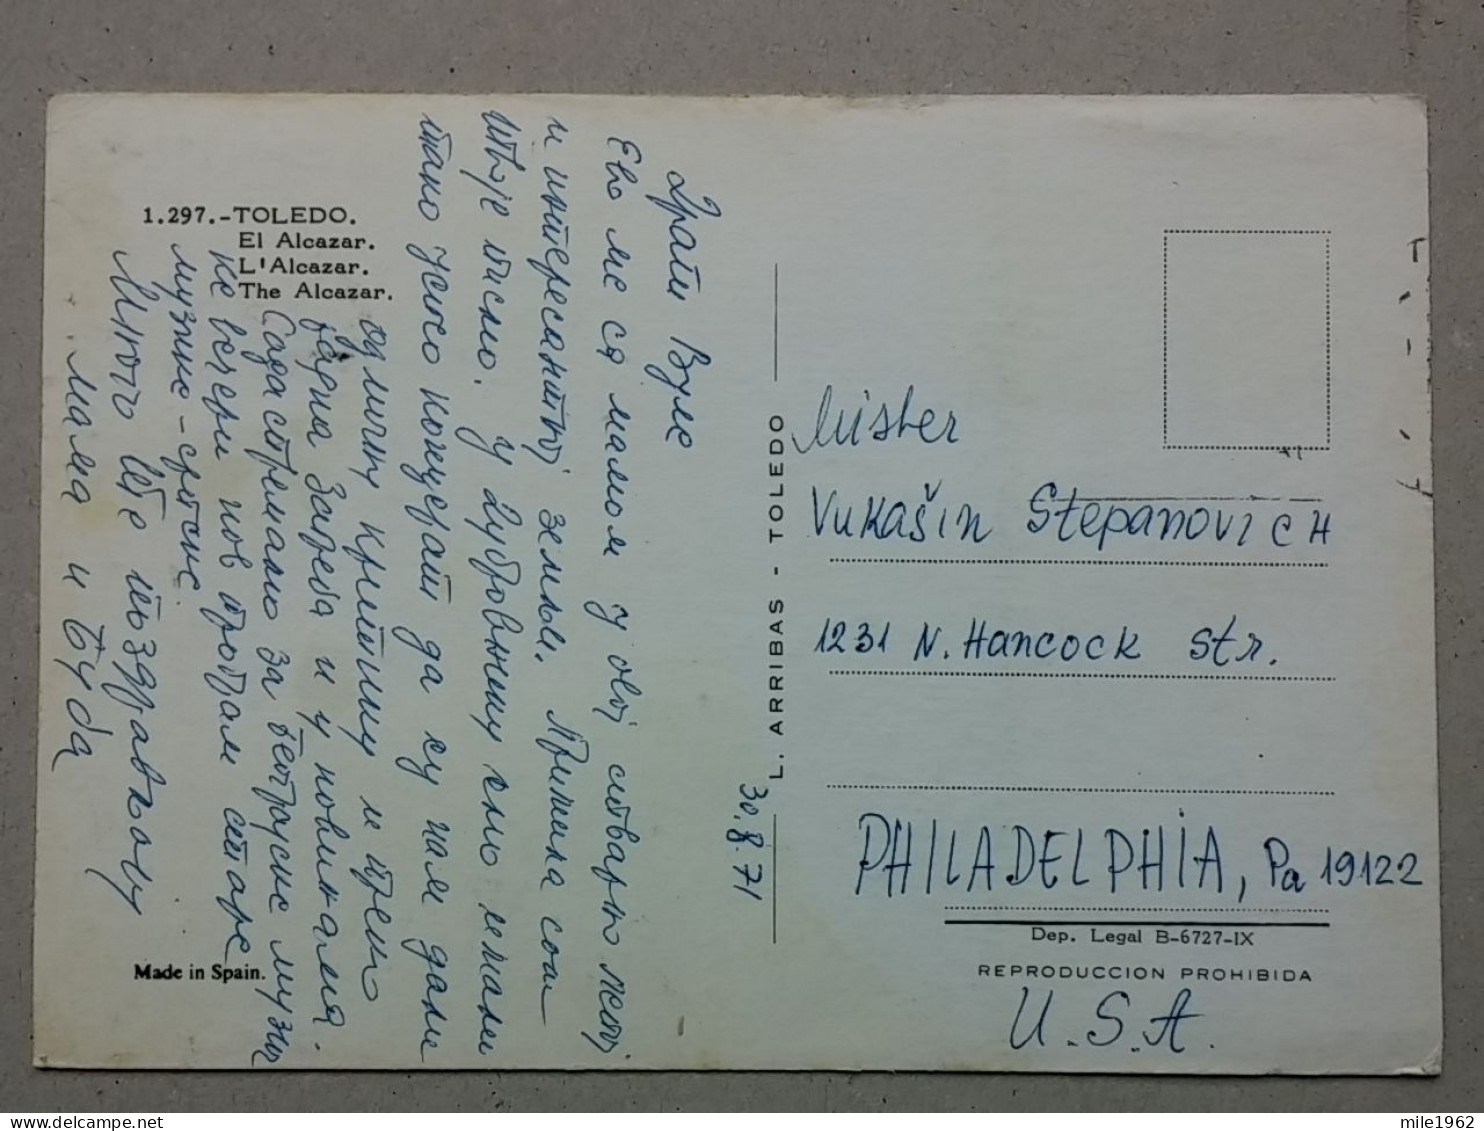 1.297.-TOLEDO.
El Alcazar.
L'Alcazar.
The Alcazar.
30.8.71
Драги Вуле
Ево ме са мамом у овој стварно лепој
и интересантној земљи. Примила сам
твоје писмо. У Дубровнику смо имали
тако успео концерат да су нам дали
одличну критику и преко
радиа Загреба и у новинама.
Сада спремамо за београдске музи
ке вечери нов програм старе
музике - српске.
Много Вас поздрављају
мама и Буба
Made in Spain.
L. ARRIBAS - TOLEDO
Mister
Vukašin Stepanovich
1231 N. Hancock Str.
PHILADELPHIA, Pa 19122
Dep. Legal B-6727-IX
REPRODUCCION PROHIBIDA
U.S.A.
mile1962